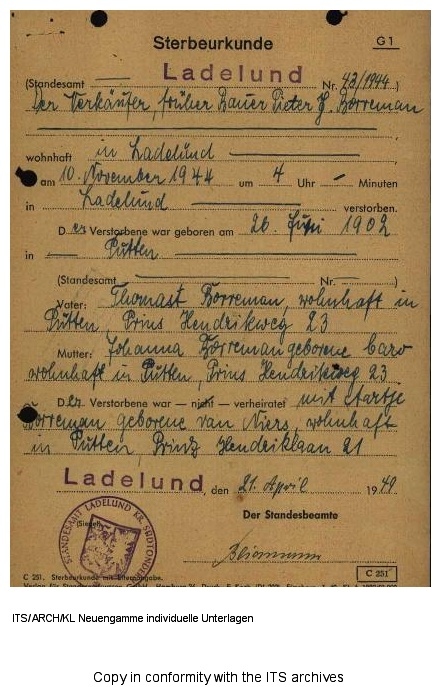 Sterbeurkunde
G 1
(Standesamt Ladelund Nr. 43/1944)
Der Verkäufer, früher Bauer Pieter H. Borreman
wohnhaft in Ladelund
am 10. November 1944 um 4 Uhr — Minuten
in Ladelund verstorben.
Der Verstorbene war geboren am 26. Juni 1902
in Putten
(Standesamt Nr. )
Vater: Thomast Borreman, wohnhaft in
Putten, Prins Hendrikweg 23
Mutter: Johanna Borreman geborene
wohnhaft in Putten, Prins Hendrikweg 23
Der Verstorbene war — nicht — verheiratet mit
Borreman geborene van Niers, wohnhaft
in Putten, Prinz Hendriklaan 21
Ladelund, den 21. April 1949
(Siegel)
STANDESAMT LADELUND KR. SÜDTONDERN
Der Standesbeamte
C 251. Sterbeurkunde mit Elternangabe.
C 251
ITS/ARCH/KL Neuengamme individuelle Unterlagen
Copy in conformity with the ITS archives